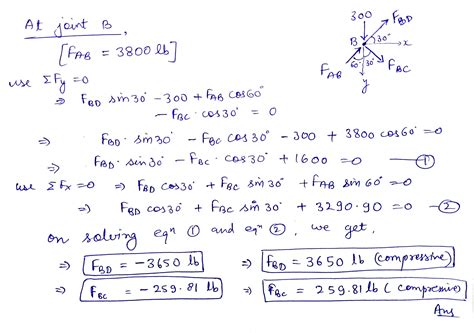 At joint B,
[F_AB = 3800 lb]
use ΣFy = 0
⇒ F_BD sin30° - 300 + F_AB cos60°
- F_BC · cos30° = 0
⇒ F_BD · sin30° - F_BC cos30° - 300 + 3800 cos60° = 0
⇒ F_BD · sin30° - F_BC · cos30° + 1600 = 0 — ①
use ΣFx = 0 ⇒ F_BD cos30° + F_BC sin30° + F_AB sin60° = 0
⇒ F_BD cos30° + F_BC sin30° + 3290.90 = 0 — ②
on solving eqⁿ ① and eqⁿ ②, we get,
⇒ F_BD = -3650 lb ⇒ F_BD = 3650 lb (compressive)
⇒ F_BC = -259.81 lb ⇒ F_BC = 259.81 lb (compresive)
Ans
300
F_BD
B
30°
x
F_AB
60°
30°
F_BC
y